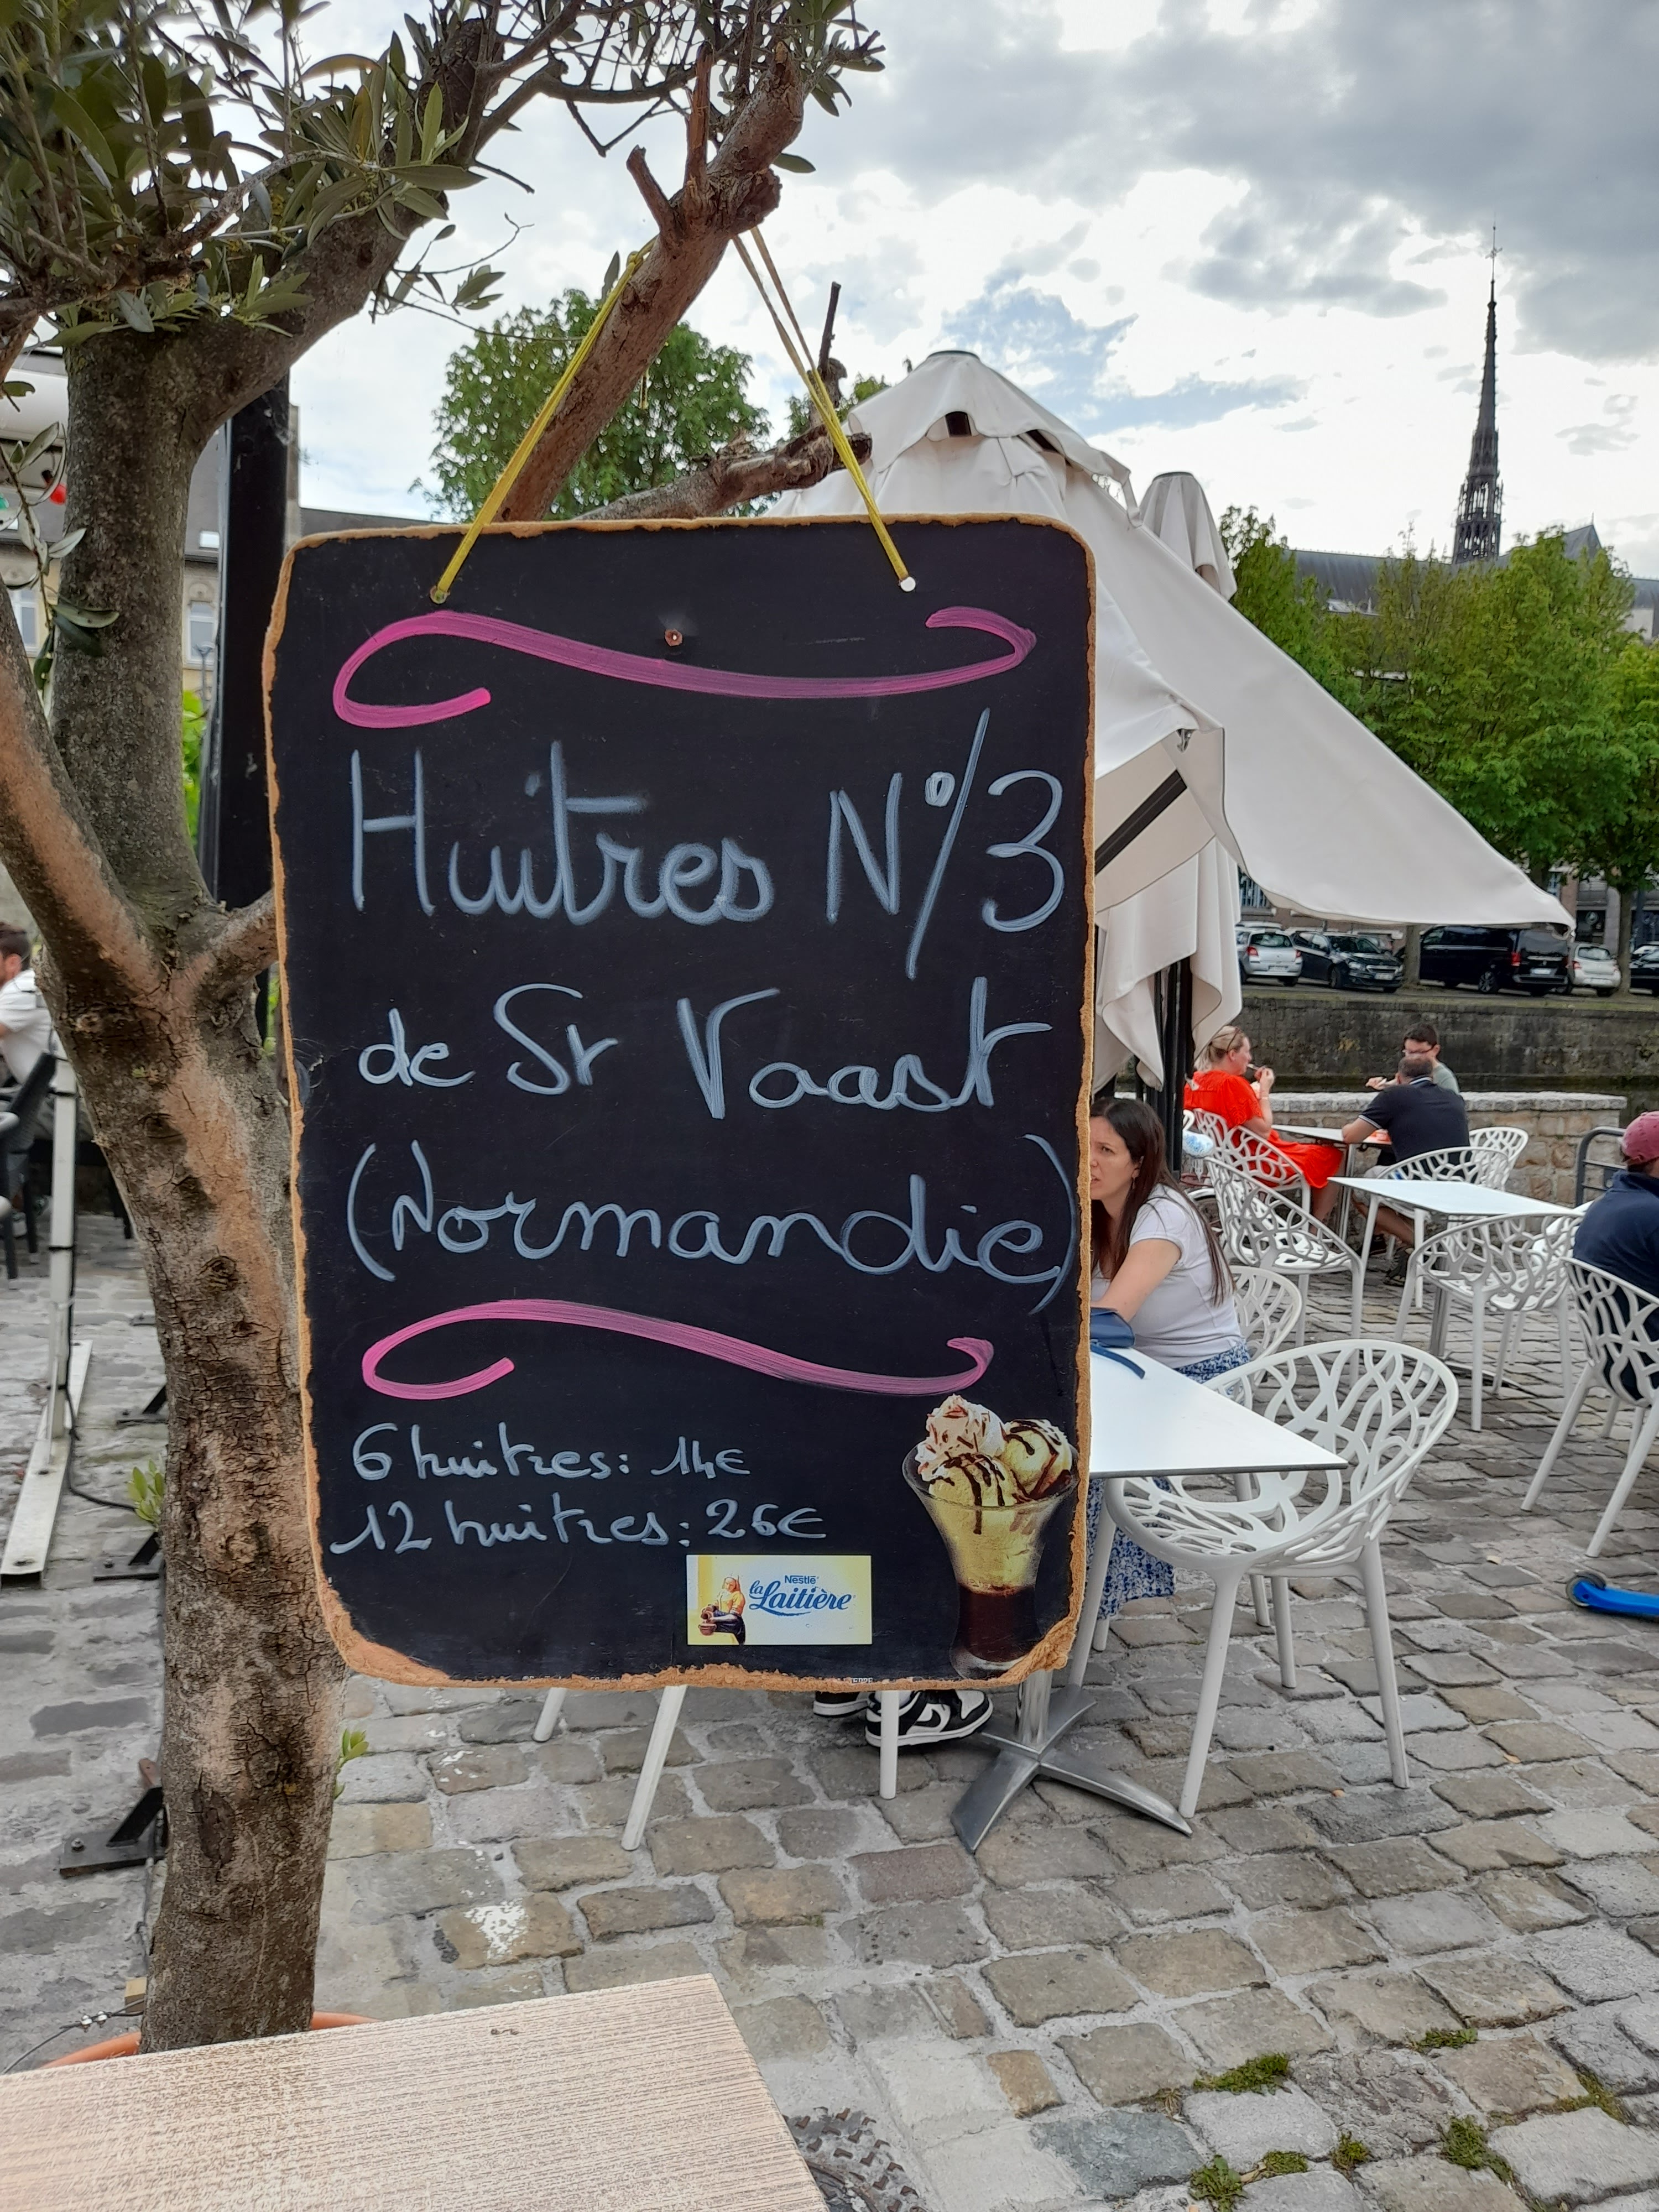 Huitres N°/3
de St Vaast
(Normandie)
6 huitres: 14€
12 huitres: 26€
Nestlé
la Laitière